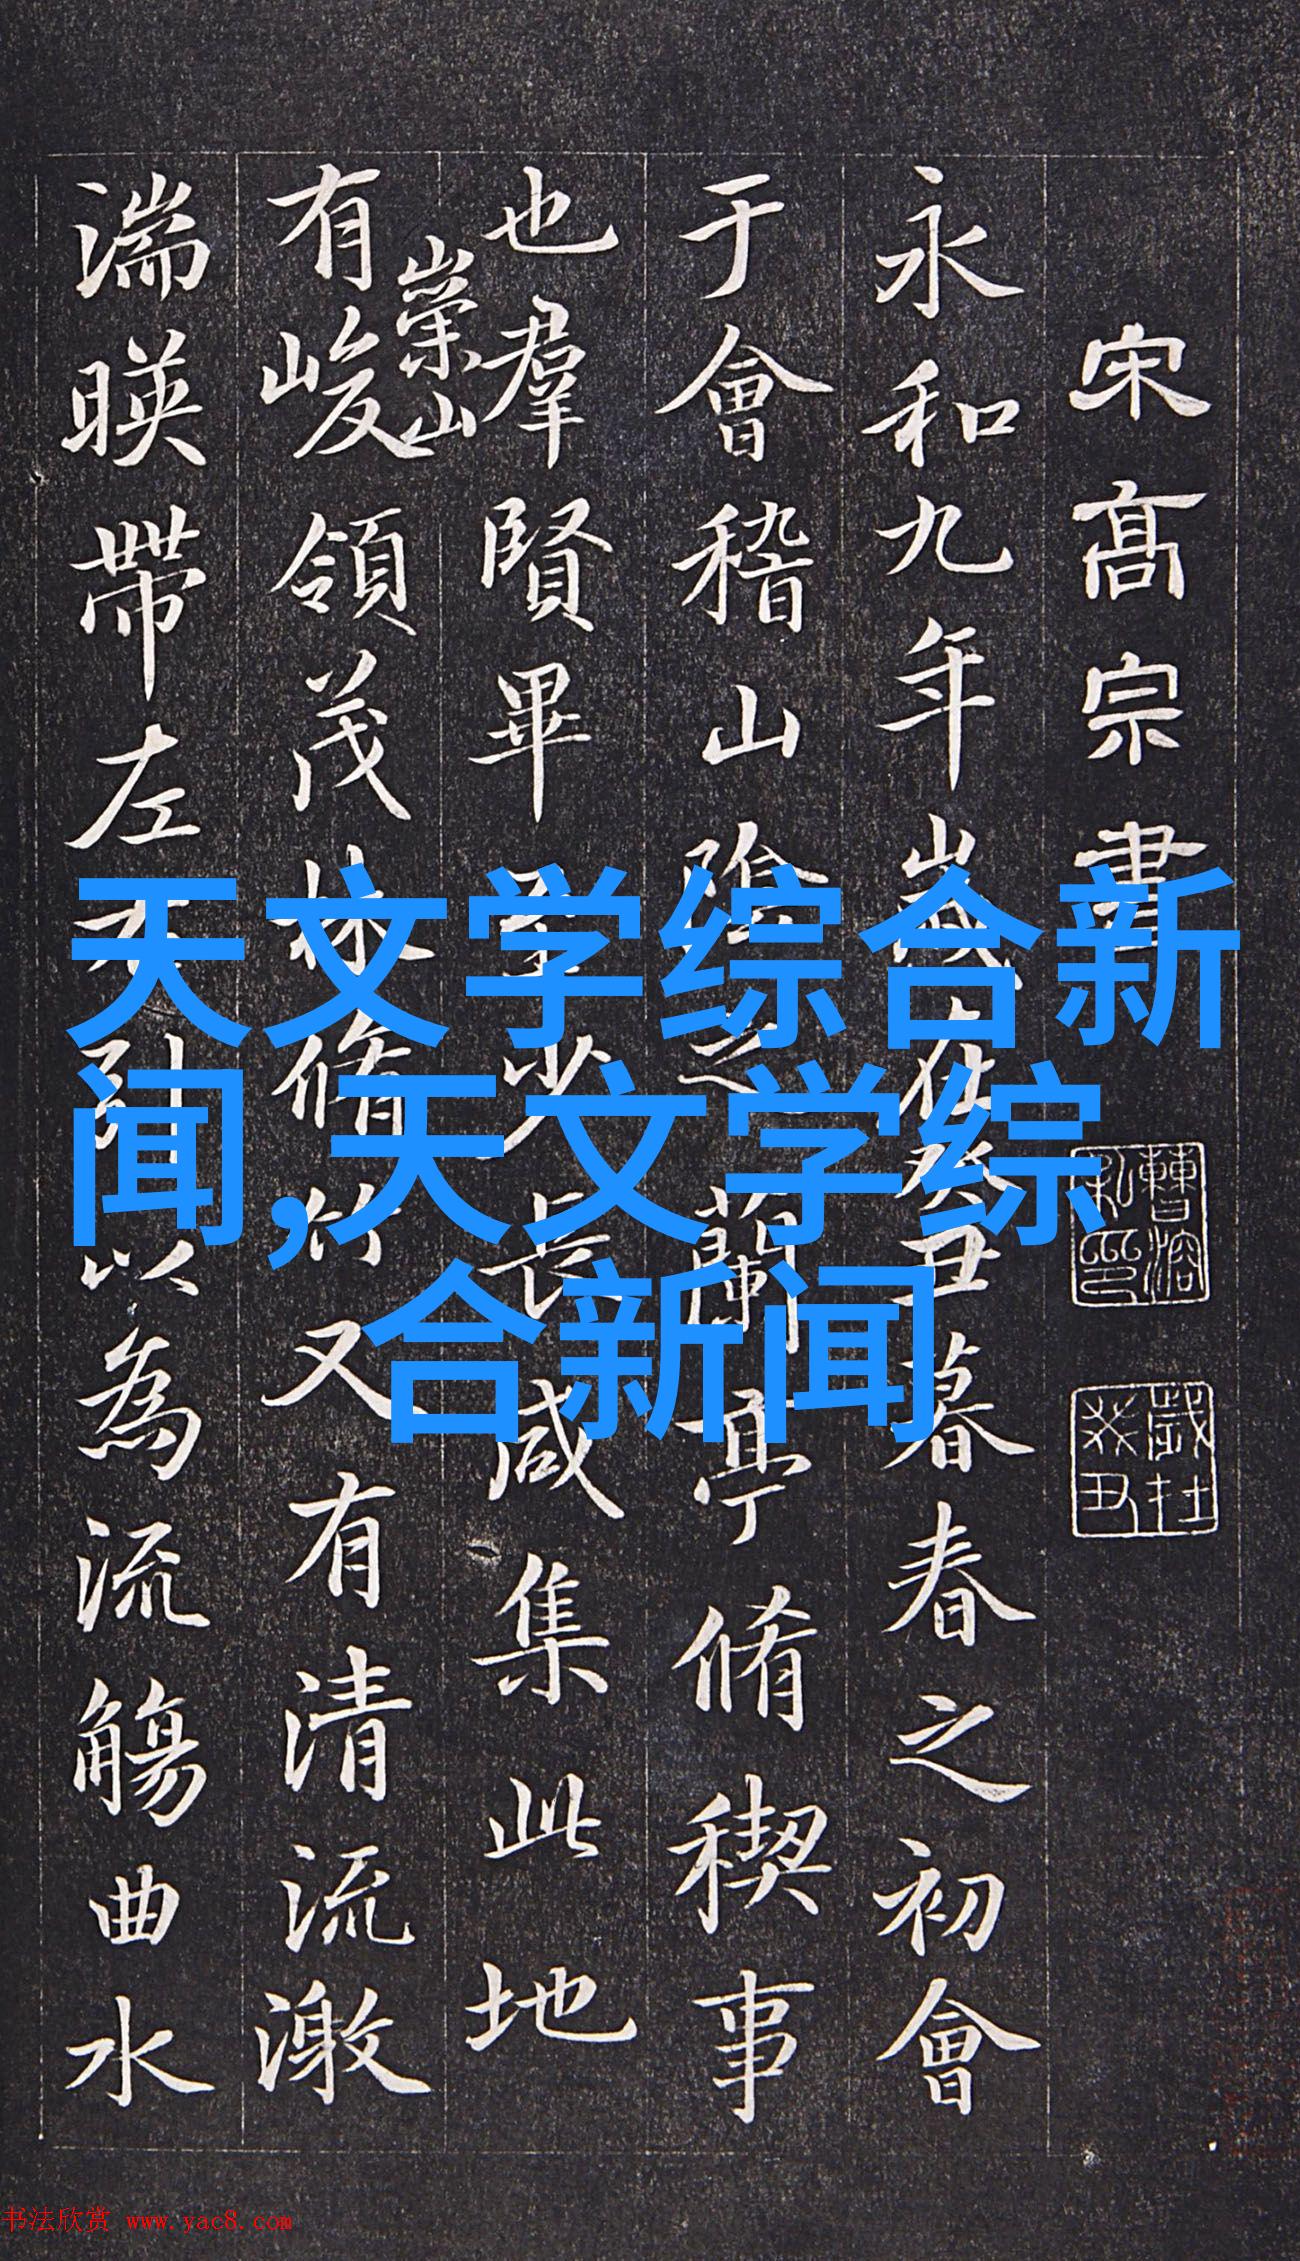 宋高宗書
永和九年歲在癸丑暮春之初會
于會稽山陰之蘭亭脩稧事
也羣賢畢至少長咸集此地
有崇山
峻領茂林脩竹又有清流激
湍暎帶左右引以為流觴曲水
曹溶私印
歲在癸丑
天文学综合新
闻,天文学综
合新闻
书法欣赏 www.yac8.com